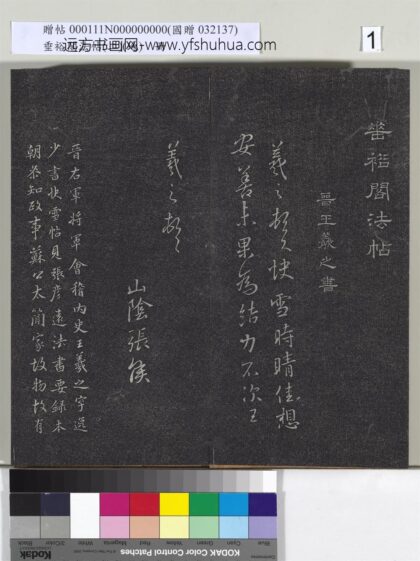 贈帖 000111N000000000(國贈 032137)
远方书画网-www.yfshuhua.com
1
垂裕閣法帖
晉王羲之書
羲之頓首快雪時晴佳想
安善未果為結力不次王
羲之頓首
山陰張侯
晉右軍將軍會稽內史王羲之字逸
少書快雪帖見張彥遠法書要錄本
朝參知政事蘇公太簡家故物故有
Blue
Cyan
Green
Yellow
Red
Magenta
White
3/Color
Black
KODAK Color Control Patches